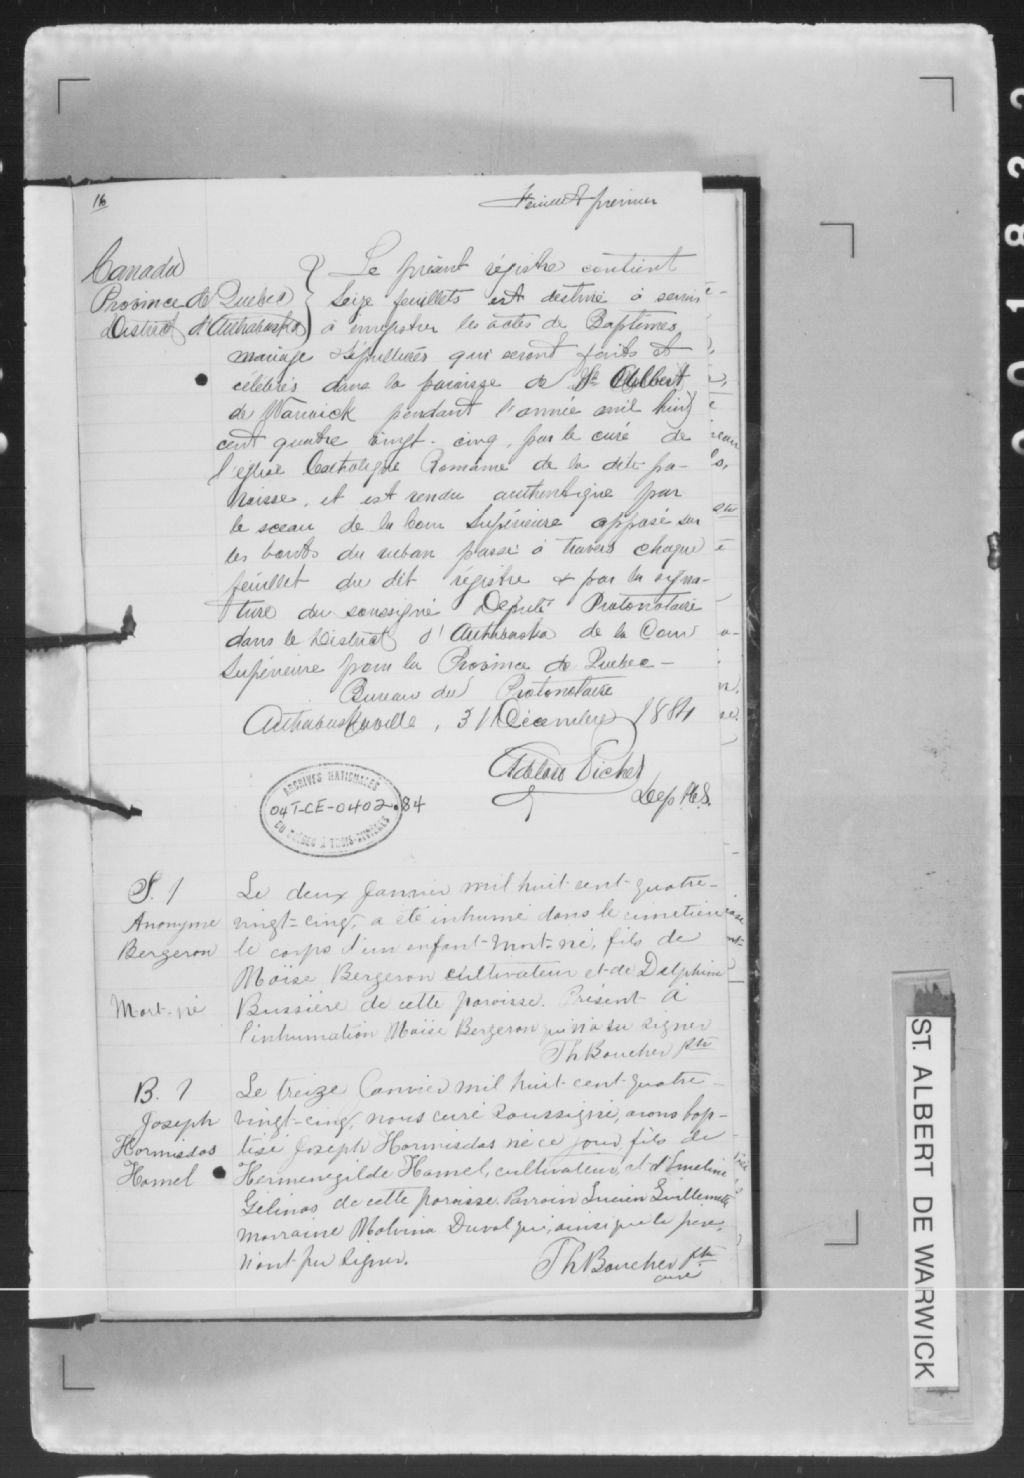 16
Feuillet premier
Canada
Province de Quebec
District d'Arthabaska
Le présent régistre contient
Seize feuillets est destiné à servir
à enregistrer les actes de Baptêmes,
mariage & Sépultures qui seront faits et
célébrés dans la paroisse de St Albert
de Warwick pendant l'année mil huit
cent quatre vingt-cinq, par le curé de
l'église Catholique Romaine de la dite pa-
roisse, et est rendu authentique par
le sceau de la Cour Supérieure apposé sur
les bouts du ruban passé à travers chaque
feuillet du dit régistre & par la signa-
ture du soussigné Député Protonotaire
dans le District d'Arthabaska de la Cour
Supérieure pour la Province de Quebec -
Bureau du Protonotaire
Arthabaskaville, 31 Décembre 1884
Picher
Dep. P.C.S.
ARCHIVES NATIONALES
04T-CE-0402-84
DU QUÉBEC À TROIS-RIVIÈRES
S. 1
Anonyme
Bergeron
Mort-né
Le deux Janvier mil huit-cent-quatre-
vingt-cinq, a été inhumé dans le cimetière
le corps d'un enfant-mort-né, fils de
Moïse Bergeron cultivateur et de Delphine
Bussière de cette paroisse. Présent à
l'inhumation Moïse Bergeron qui n'a su signer
Th Boucher ptre
B. 1
Joseph
Hormisdas
Hamel
Le treize Janvier mil huit-cent-quatre-
vingt-cinq, nous curé soussigné, avons bap-
tisé Joseph Hormisdas né ce jour fils de
Hermenegilde Hamel, cultivateur, et d'Emeline
Gélinas de cette paroisse. Parrain Lucien Guillemette
marraine Malvina Duval qui, ainsi que le père,
n'ont pu signer.
Th Boucher ptre
curé
ST. ALBERT DE WARWICK